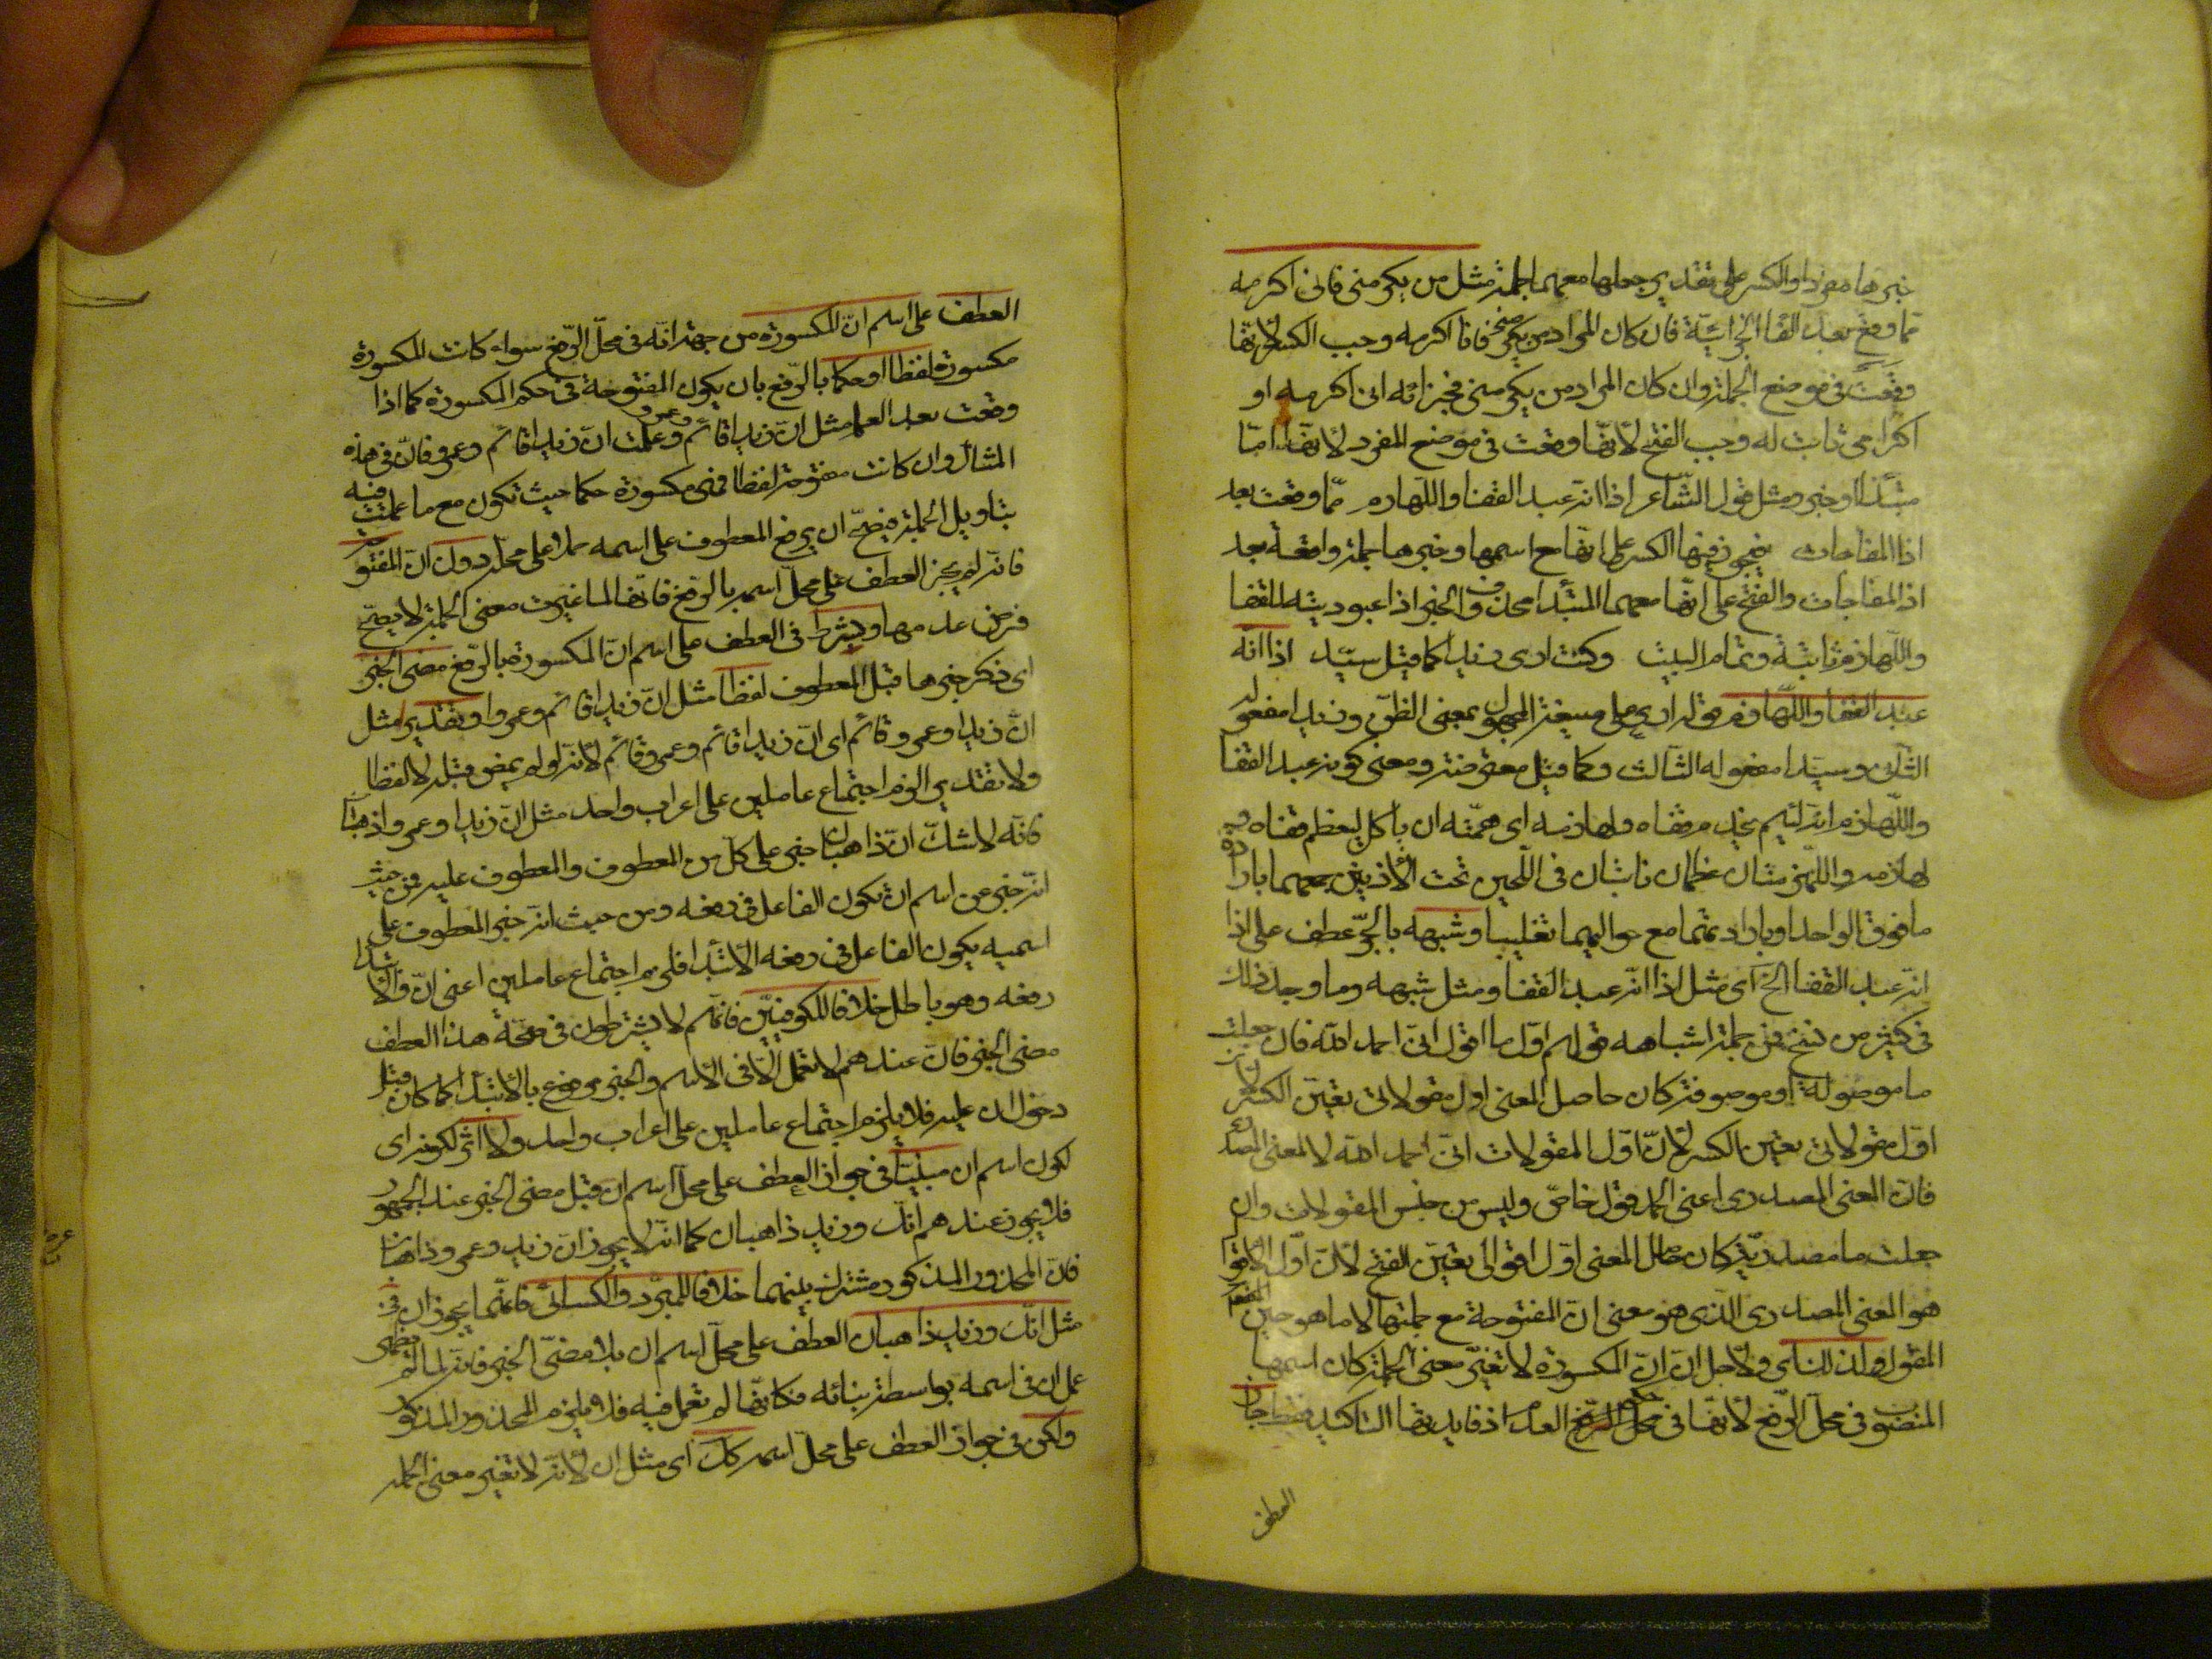 خبرها مفردا والكسر على تقدير جعلها معهما جملة مثل من يكرمنى فانى اكرمه
مما وقع بعد الفا الجزائية فان كان المراد من يكرمنى فانا اكرمه وجب الكسر لانها
وقعت فى موضع الجملة وان كان المراد من يكرمنى فجزاؤه انى اكرمه او
اكرامى ثابت له وجب الفتح لانها وقعت فى موضع المفرد لانها اما
مبتدأ او خبر ومثل قول الشاعر اذا انه عبد القفا واللهازم مما وقعت بعد
اذا المفاجات فيجوز فيها الكسر على انها مع اسمها وخبرها جملة واقعة بعد
اذا المفاجات والفتح على انها معهما المبتدأ محذوف الخبر اذا عبوديته للقفا
واللهازم ثابتة وتمام البيت وكنت ارى زيدا كما قيل سيد اذا انه
عبد القفا واللهازم قوله ارى على صيغة المجهول بمعنى الظن وزيدا مفعوله
الثانى وسيدا مفعوله الثالث وكما قيل معترضة ومعنى كونه عبد القفا
واللهازم انه لئيم يخدم قفاه ولهازمه اى همته ان ياكل ليعظم قفاه و
لهازمه واللهزمتان عظمان ناتيان فى اللحيين تحت الاذنين جمعهما بارادة
ما فوق الواحد او بارادتهما مع حواليهما تغليبا وشبهه بالجر عطف على اذا
انه عبد القفا الخ اى مثل اذا انه عبد القفا ومثل شبهه وما وجد ذلك
فى كثير من نسخ فمن جملة اشباهه قولهم اول ما اقول انى احمد الله فان جعلت
ما موصولة او موصوفة كان حاصل المعنى اول مقولاتى تعين الكسر لان
اول مقولاتى تعين الكسر لان اول المقولات انى احمد الله لا المعنى المصدرى
فان المعنى المصدرى اعنى الحمد قول خاص وليس من جنس المقولات وان
جعلت ما مصدرية كان حاصل المعنى اول اقوالى تعين الفتح لان اول الاقوا
هو المعنى المصدرى الذى هو معنى ان المفتوحة مع جملتها لا ما هو من جنس
المقول ولذلك اى ولاجل ان ان المكسورة لا تغير معنى الجملة كان اسمها
المنصوب فى محل الرفع لانها فى حكم العدم اذ فايدتها التاكيد فقط جاز
العطف
العطف على اسم ان المكسورة من جهة انه فى محل الرفع سواء كانت المكسورة
مكسورة لفظا او حكما بالرفع بان يكون المفتوحة فى حكم المكسورة كما اذا
وقعت بعد العلم مثل ان زيدا قائم وعمرو وعلمت ان زيدا قائم وعمرو فان فى هذه
المثال وان كانت مفتوحة لفظا فهى مكسورة حكما حيث تكون مع ما عملت فيه
بتاويل الجملة فيصح ان يرفع المعطوف على اسمه حملا على محله دون ان المفتوحة
فانه لم يجز العطف على محل اسمه بالرفع فانها لما غيرت معنى الجملة لا يصح
فرض عدمها ويشترط فى العطف على اسم ان المكسورة بالرفع مضى الخبر
اى ذكر خبرها قبل المعطوف لفظا مثل ان زيدا قائم وعمرو او تقديرا مثل
ان زيدا وعمرو قائم اى ان زيدا قائم وعمرو قائم لانه لو لم يمض قبله لا لفظا
ولا تقديرا لزم اجتماع عاملين على اعراب واحد مثل ان زيدا وعمرو ذاهبان
فانه لا شك ان ذاهبان خبر على كل من المعطوف والمعطوف عليه فمن حيث
انه خبر عن اسم ان يكون الفاعل فى رفعه ومن حيث انه خبر المعطوف على
اسميه يكون الفاعل فى رفعه الابتدا فلزم اجتماع عاملين اعنى ان والابتدا
رفعه وهو باطل خلافا للكوفيين فانهم لا يشترطون فى صحة هذا العطف
مضى الخبر فان عندهم لا تعمل الا فى الاسم والخبر مرفوع بالابتدا كما كان قبل
دخول ان عليه فلا يلزم اجتماع عاملين على اعراب واحد ولا اثر لكونه اى
لكون اسم ان مبنيا فى جواز العطف على محل اسم ان قبل مضى الخبر عند الجمهور
فلا يجوز عندهم انك وزيد ذاهبان كما انه لا يجوز ان زيد وعمرو ذاهبان
فان المحذور المذكور مشترك بينهما خلافا للمبرد والكسائى فانهما يجوزان فى
مثل انك وزيد ذاهبان العطف على محل اسم ان بلا مضى الخبر فانه لما لم يظهر
عمل ان فى اسمه بواسطة بنائه فكانها لم تعمل فيه فلا يلزم المحذور المذكور
ولكن فى جواز العطف على محل اسمه كذلك اى مثل ان لانه لا تغير معنى الجملة